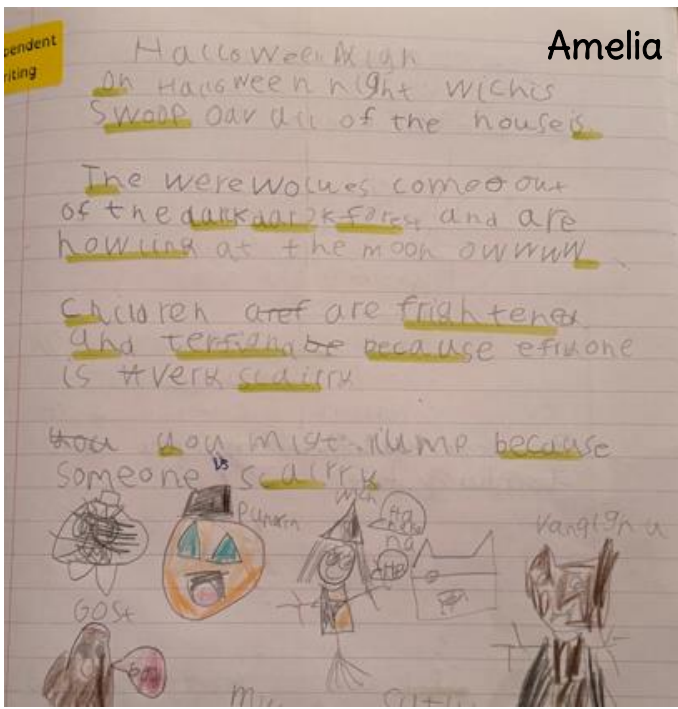 pendent
riting
Amelia
Halloween Nigh
On Halloween night wichis
swoop oav all of the houseis.
The werewolves come out
of the dark dark forest and are
howling at the moon owwuw.
Children aref are frightened
and terfignd be because
is very scairry
you you because
someone is scairry
Punpkin
wich
Ha
ha ha
ha
He
Gost
Boo